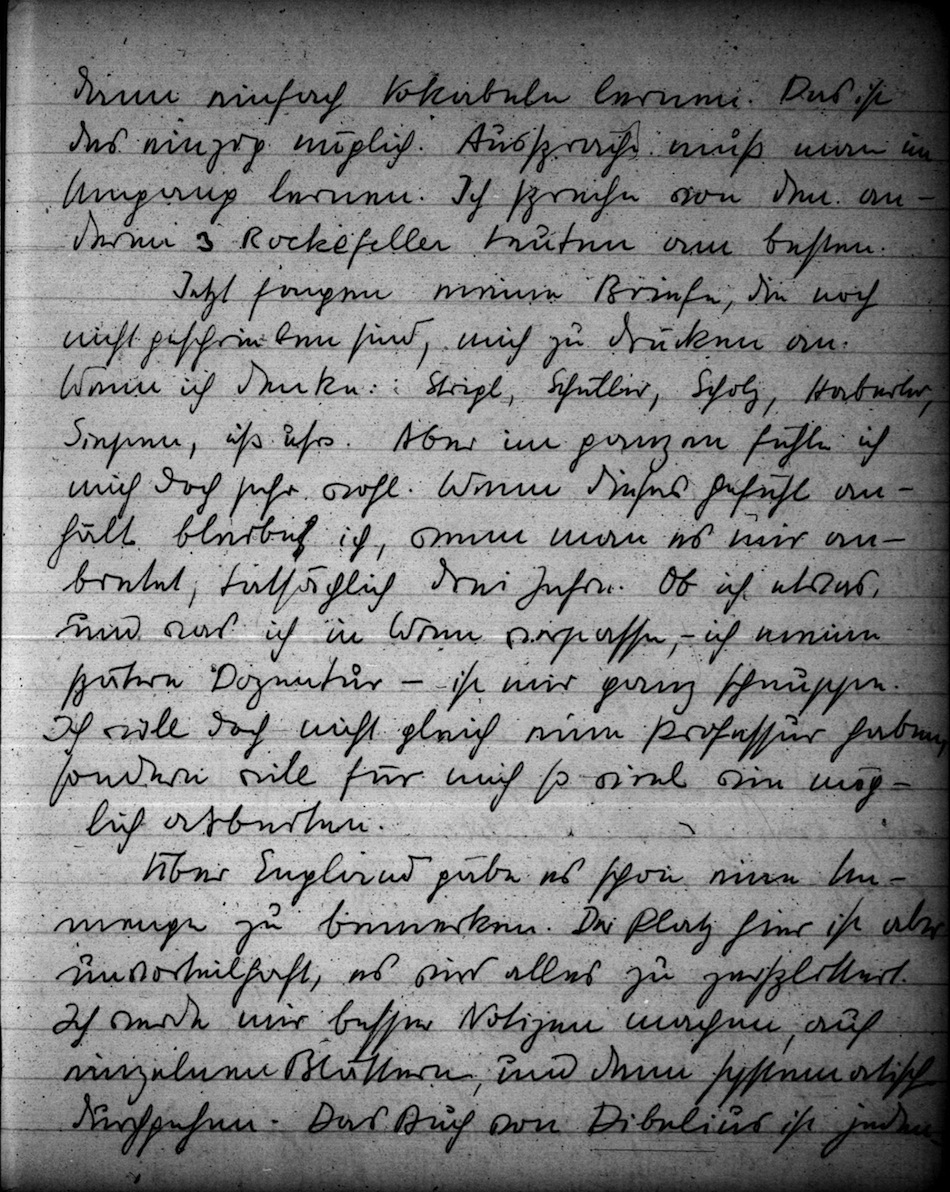 dann einfach Vokabeln lernen. Das ist
das einzig mögliche. Aussprache muß man im
Umgang lernen. Ich spreche von den an-
deren 3 Rockefeller Leuten am besten.
Jetzt fangen meine Briefe, die noch
nicht geschrieben sind, mich zu drücken an.
Wenn ich denke: Strigl, Schütler, Scholz, Haberler,
usw. Aber im ganzen fühle ich
mich doch sehr wohl. Wenn dieses Gefühl an-
hält bleibe ich, wenn man es mir an-
bietet, tatsächlich drei Jahre. Ob ich etwas,
und was ich in Wien verpasse, – ich meine
spätere Dozentur – ist mir ganz schnuppe.
Ich will doch nicht gleich eine Professur haben,
sondern will für mich so viel wie mög-
lich arbeiten.
Über England gäbe es schon eine Un-
menge zu bemerken. Der Platz hier ist aber
unvorteilhaft, es wird alles zu zersplittert.
Ich werde mir besser Notizen machen, auf
einzelnen Blättern, und dann systematisch
durchgehen. Das Buch von Dibelius ist jeden-